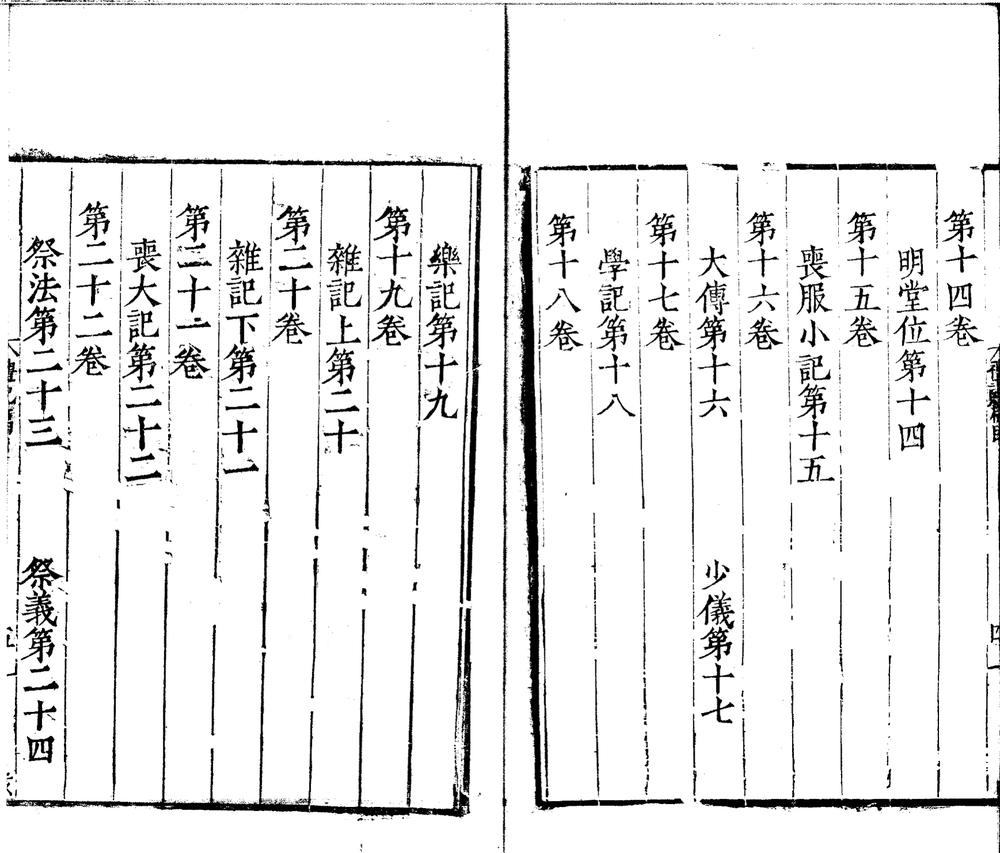 第十四卷
明堂位第十四
第十五卷
喪服小記第十五
第十六卷
大傳第十六　少儀第十七
第十七卷
學記第十八
第十八卷
樂記第十九
第十九卷
雜記上第二十
第二十卷
雜記下第二十一
第二十一卷
喪大記第二十二
第二十二卷
祭法第二十三　祭義第二十四